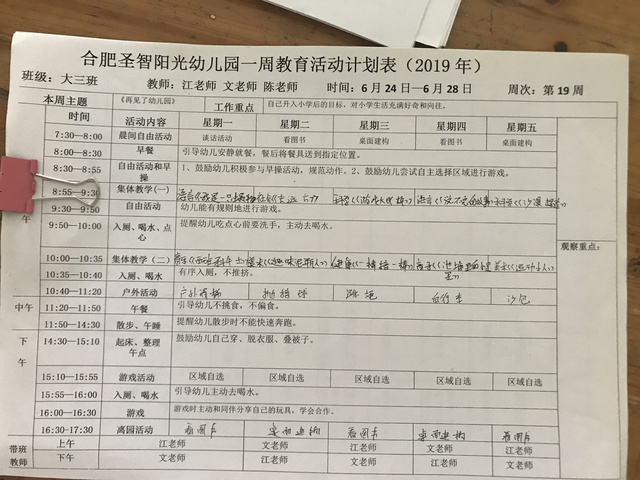 合肥圣智阳光幼儿园一周教育活动计划表（2019 年）
班级：大三班 教师：江老师 文老师 陈老师 时间：6 月 24日—6 月 28 日 周次：第 19 周
本周主题 《再见了幼儿园》 工作重点 自己升入小学后的目标，对小学生活充满好奇和向往。
时间 活动内容 星期一 星期二 星期三 星期四 星期五
7:30—8:00 晨间自由活动 谈话活动 看图书 桌面建构 看图书 桌面建构
8:00—8:30 早餐 引导幼儿安静就餐，餐后将餐具送到指定位置。
8:30—8:55 自由活动和早操 1、鼓励幼儿积极参与早操活动，规范动作。2、鼓励幼儿尝试自主选择区域进行游戏。
8:55—9:30 集体教学(一)
午
9:30—9:50 自由活动 幼儿能有规则地进行游戏。
9:50—10:00 入厕、喝水、点心 提醒幼儿吃点心前要洗手，主动去喝水。
观察重点：
10:00—10:35 集体教学（二）
10:35—10:40 入厕、喝水 有序入厕，不推挤。
10:40—11:20 户外活动 沙包
中午 11:20—11:50 午餐 引导幼儿不挑食，不偏食。
11:50—14:30 散步、午睡 提醒幼儿散步时不能快速奔跑。
下午 14:30—15:10 起床、整理午点 鼓励幼儿自己穿、脱衣服、叠被子。
15:10—15:55 游戏活动 区域自选 区域自选 区域自选 区域自选 区域自选
15:55—16:00 入厕、喝水 引导幼儿主动去喝水。
16:00—16:30 游戏 游戏时主动和同伴分享自己的玩具，学会合作。
16:30-17:30 离园活动 看图书 桌面建构 看图书 桌面建构 看图书
带班教师 上午 江老师 文老师 江老师 文老师 江老师
下午 文老师 江老师 文老师 江老师 文老师